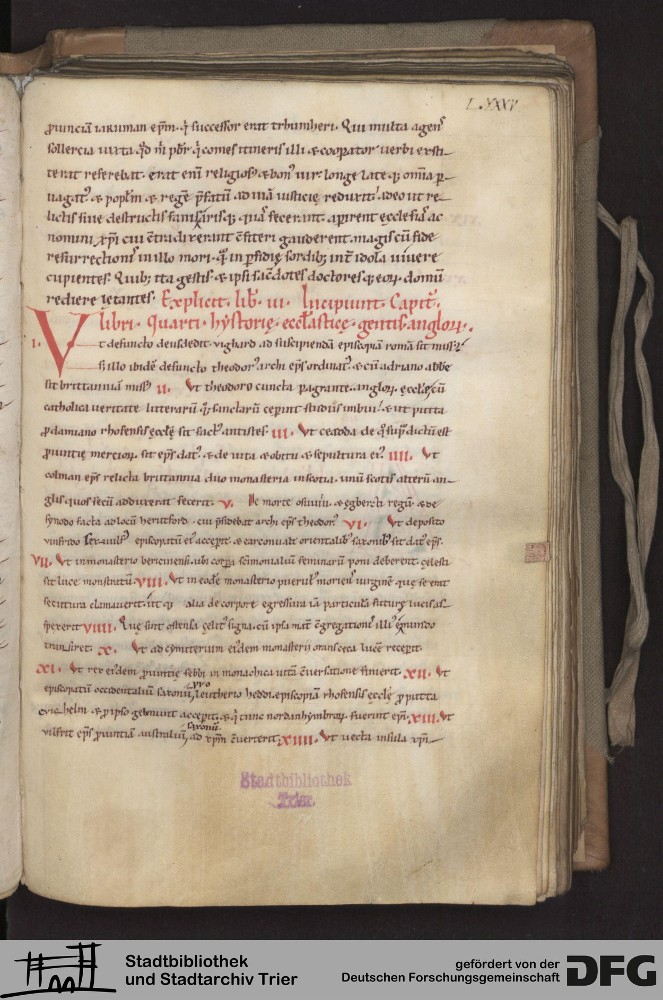 LXXXV
ꝓuinciā iaruman ep̄m· q̇ successor erat trumheri. Qui multa agens
sollertia iuxta q̄d m̄ pb̄r q̇ comes itineris illi & coopator uerbi exsti-
terat referebat. erat eni religios; & bon; uir. longe late q; omīa p-
uagat; & popl̄m & regē p̄fatū ad uiā iusticie reduxit. adeo ut re-
lictis siue destructis fanis aris q; quas fecerant aperirent ęcclesias ac
nomini xp̄i cui c̄tra dixerant c̄fiteri gauderent. magis cū fide
resurrectionis in illo mori. q̄ in p̄fidię sordib; int̄ idola uiuere
cupientes. Quib; ita gestis & ipsi sac̄dotes doctores q; eorꝝ domū
rediere lętantes. Explicit. lib̄. iii. Incipiunt. Capit̄.
libri. Quarti. hystorię. eccl̄asticę. gentis anglorꝝ.
i. Vt defuncto deusdedit. uighard ad suscipiendā episcopatū romā sit miss;
s; illo ibidē defuncto theodor; archi ep̄s ordinat; & cū adriano abbe
sit brittanniā miss; ii. Vt theodoro cuncta pagrante. anglorꝝ ęccl̄ę cū
catholica ueritate litterarū q; sanctarū cepint studiis imbui. & ut putta
ꝓ damiano rhofensis ęccl̄ę sit fact; antistes. iii. Vt ceadda de q̇ sup̄ dictū est
ꝓuintię merciorꝝ sit ep̄s dat; & de uita & obitu & sepultura ei; iiii. Vt
colman ep̄s relicta britannia duo monasteria in scotia. unū scotis alterū an-
glis quos secū adduxerat fecerit. v. De morte osuuiu. & egberti regū. & de
synodo facta ad locū herutford. cui p̄sidebat archi ep̄s theodor; vi. Vt deposito
uinfrido sexuulf; episcopatū ei; accepit. & earconuald orientalib; saxonib; sit dat; ep̄s.
vii. Vt in monasterio bericinensi. ubi corpora sc̄imonialiū feminarū poni deberent. cęlesti
sit luce monstratū viii. Vt in eodē monasterio puerul; moriens uirginē quę se erat
secutura clamauerit. ut q; alia de corpore egressura iā particulā futurę lucis as-
pexerit viiii. Quę sint ostensa cęlit; signa. cū ipsa mat̄ c̄gregationis illi; e mundo
transiret. x. Vt ad cymiterium ei;dem monasterii orans ceca lucē recepit.
xi. Vt rex ei;dem ꝓuintię sebbi in monachica uitā c̄uersatione finierit. xii. Vt
episcopatū occidentaliū saxonū pro leutherio heddi. episcopatū rhofensis ęccl̄ę ꝓ putta
cuichelm & ꝓ ipso gebmunt accepit. & q̇ tunc nordanhymbrorꝝ fuerint ep̄i. xiii. Vt
uilfrit ep̄s ꝓuintiā australiū saxonū ad xp̄m c̄uerterit. xiiii. Vt uecta insula xp̄i-
Stadtbibliothek
Trier.
Stadtbibliothek
und Stadtarchiv Trier
gefördert von der
Deutschen Forschungsgemeinschaft
DFG